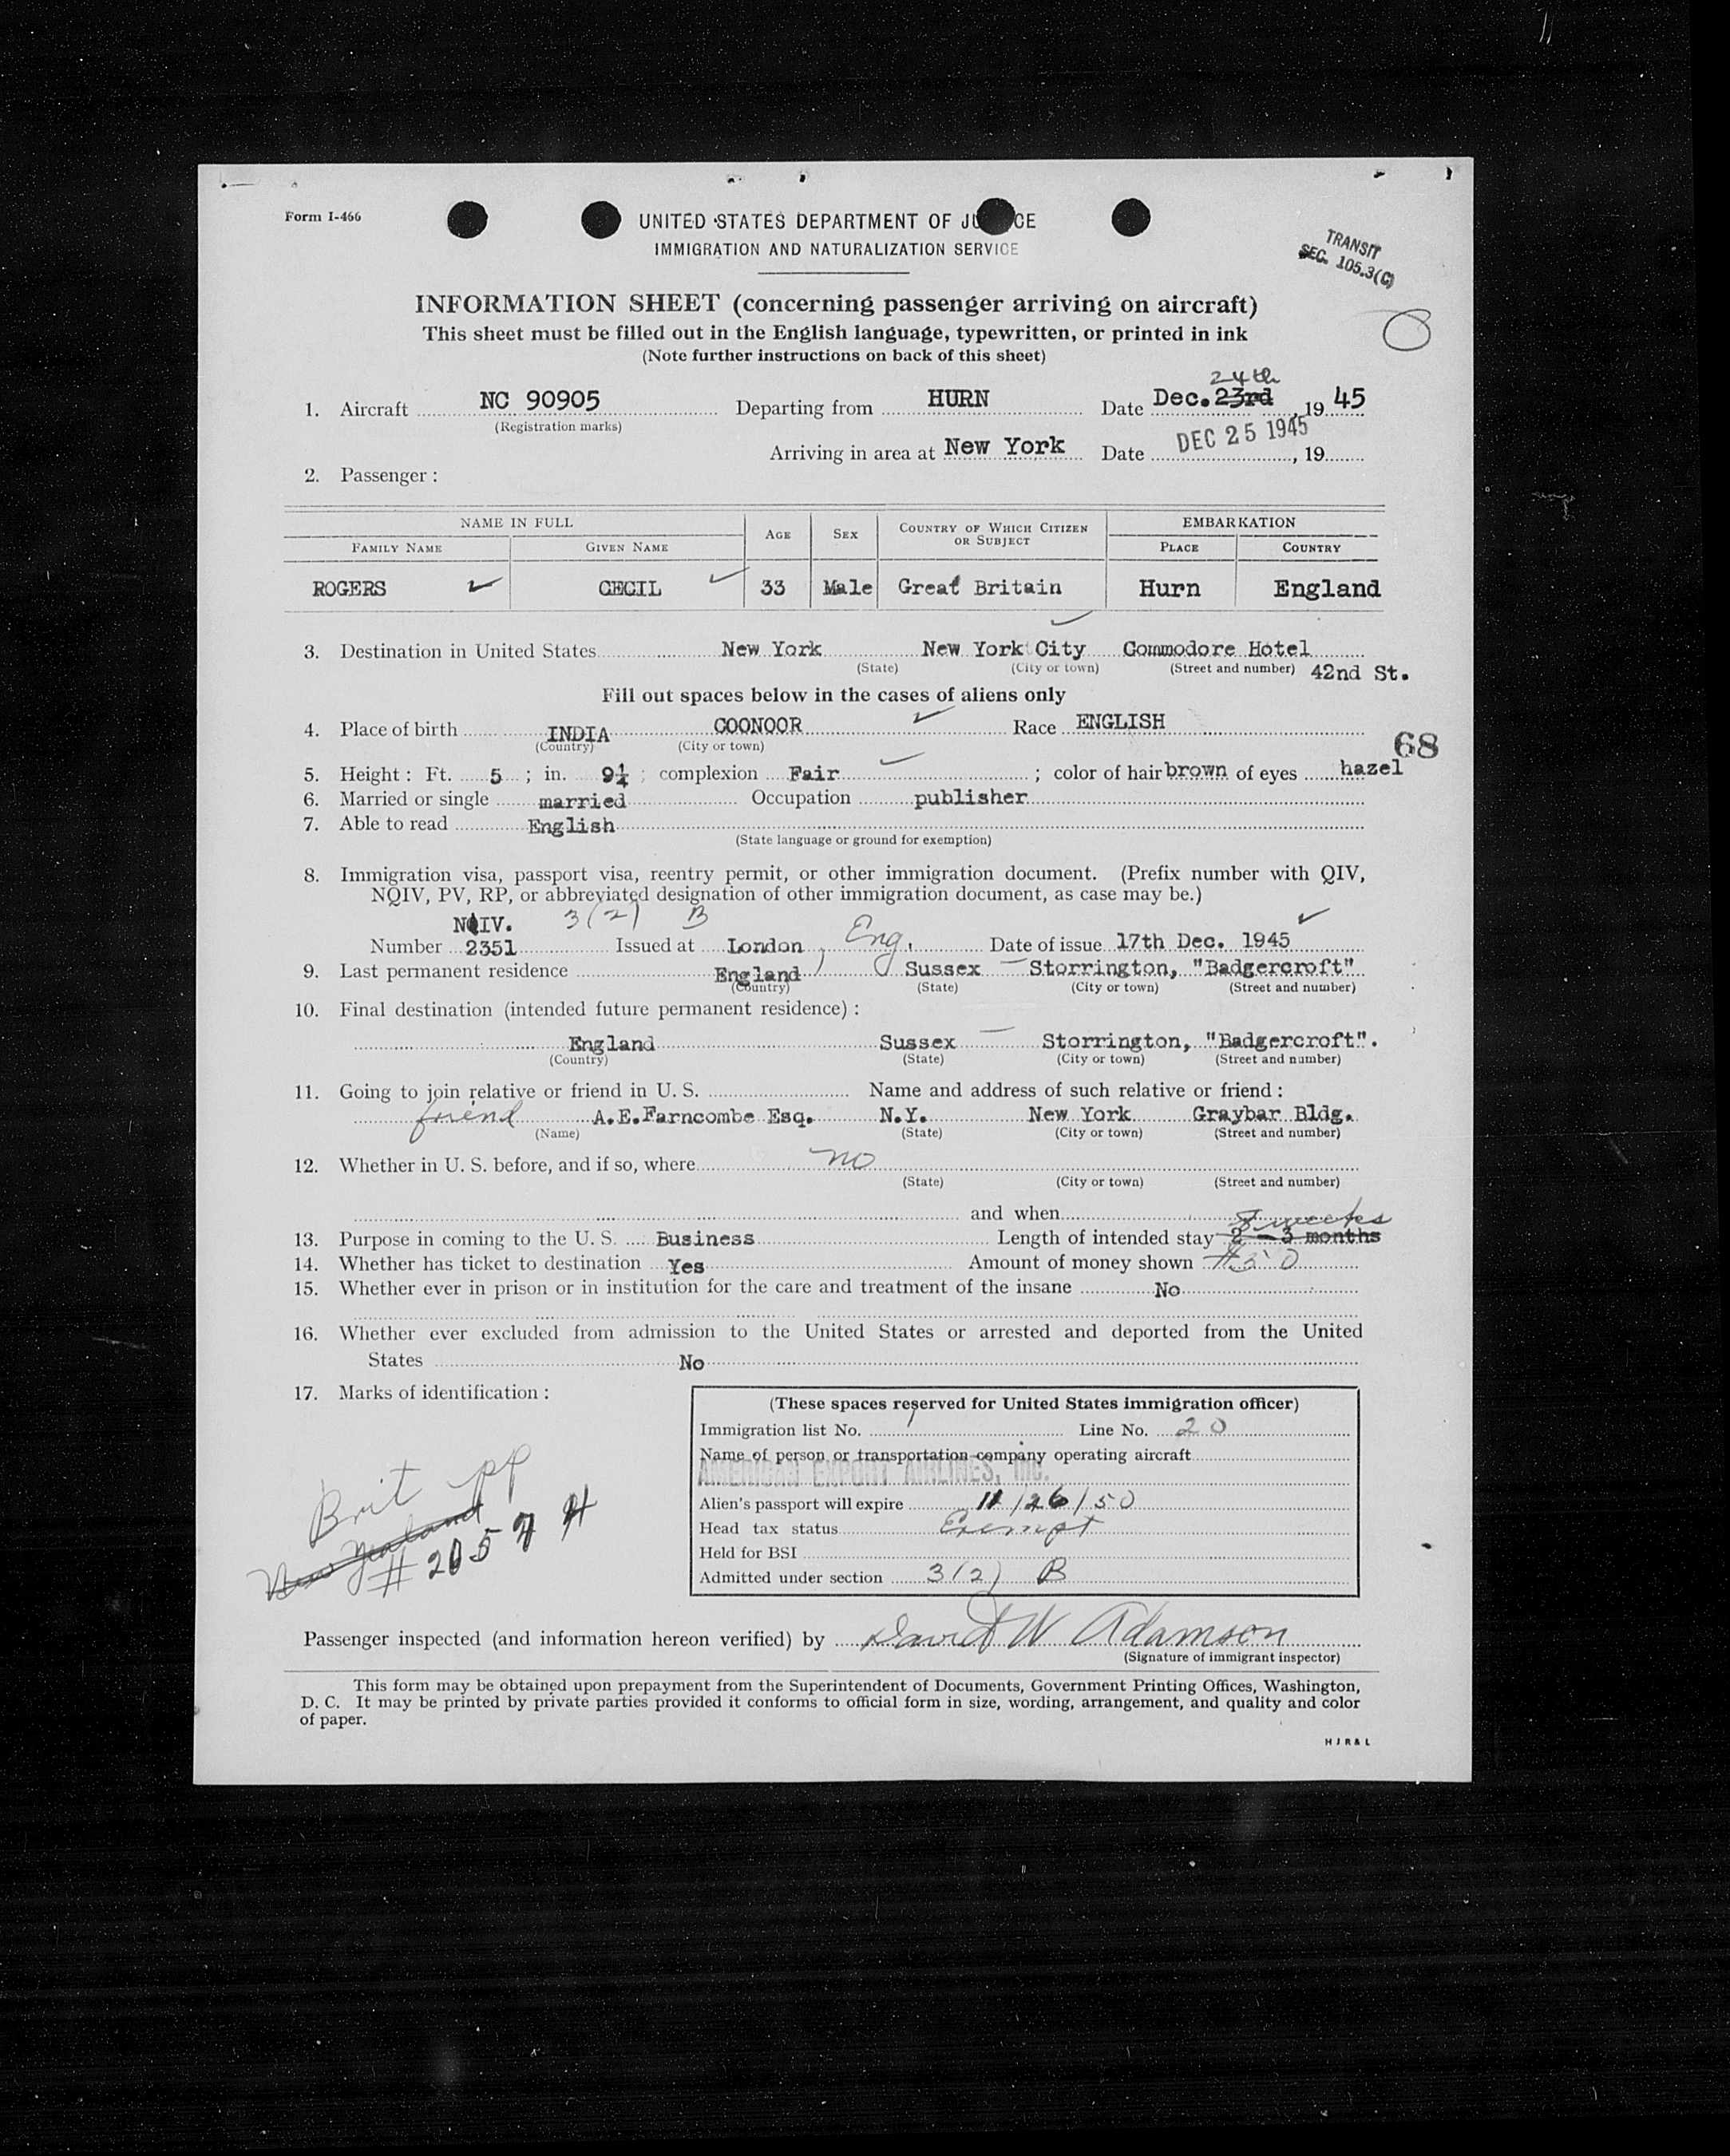 Form I-466
UNITED STATES DEPARTMENT OF JU CE
IMMIGRATION AND NATURALIZATION SERVICE
TRANSIT
SEC. 105.3(C)
INFORMATION SHEET (concerning passenger arriving on aircraft)
This sheet must be filled out in the English language, typewritten, or printed in ink
(Note further instructions on back of this sheet)
24th
1. Aircraft NC 90905 Departing from HURN Date Dec. 23rd, 1945
(Registration marks)
Arriving in area at New York Date DEC 25 1945, 19
2. Passenger :
NAME IN FULL AGE SEX COUNTRY OF WHICH CITIZEN OR SUBJECT EMBARKATION
FAMILY NAME GIVEN NAME PLACE COUNTRY
ROGERS CECIL 33 Male Great Britain Hurn England
3. Destination in United States New York New York City Commodore Hotel
(State) (City or town) (Street and number) 42nd St.
Fill out spaces below in the cases of aliens only
4. Place of birth INDIA COONOOR Race ENGLISH
(Country) (City or town)
68
5. Height : Ft. 5 ; in. 9¼ ; complexion Fair ; color of hair brown of eyes hazel
6. Married or single married Occupation publisher
7. Able to read English
(State language or ground for exemption)
8. Immigration visa, passport visa, reentry permit, or other immigration document. (Prefix number with QIV,
NQIV, PV, RP, or abbreviated designation of other immigration document, as case may be.)
NQIV. 3(2) B
Number 2351 Issued at London, Eng. Date of issue 17th Dec. 1945
9. Last permanent residence England Sussex Storrington, "Badgercroft"
(Country) (State) (City or town) (Street and number)
10. Final destination (intended future permanent residence) :
England Sussex Storrington, "Badgercroft".
(Country) (State) (City or town) (Street and number)
11. Going to join relative or friend in U. S. Name and address of such relative or friend :
friend A.E.Farncombe Esq. N.Y. New York Graybar Bldg.
(Name) (State) (City or town) (Street and number)
12. Whether in U. S. before, and if so, where no
(State) (City or town) (Street and number)
and when
8 weeks
13. Purpose in coming to the U. S. Business Length of intended stay 2 - 3 months
14. Whether has ticket to destination Yes Amount of money shown #50
15. Whether ever in prison or in institution for the care and treatment of the insane No
16. Whether ever excluded from admission to the United States or arrested and deported from the United
States No
17. Marks of identification :
Brit pp
New Zealand
(These spaces reserved for United States immigration officer)
Immigration list No. 1 Line No. 20
Name of person or transportation company operating aircraft
AMERICAN EXPORT AIRLINES, INC.
Alien's passport will expire 11/26/50
Head tax status Exempt
Held for BSI
Admitted under section 3(2) B
Passenger inspected (and information hereon verified) by David W Adamson
(Signature of immigrant inspector)
This form may be obtained upon prepayment from the Superintendent of Documents, Government Printing Offices, Washington,
D. C. It may be printed by private parties provided it conforms to official form in size, wording, arrangement, and quality and color
of paper.
H J R & L